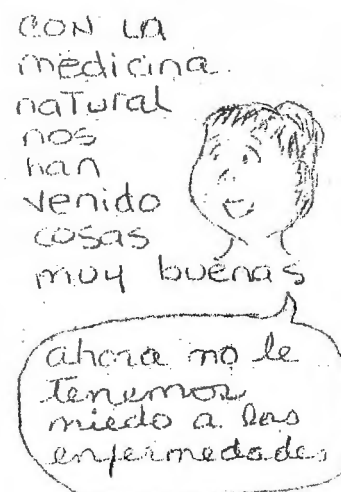 CON LA
medicina
natural
nos
han
venido
cosas
muy buenas
ahora no le
tenemos
miedo a las
enfermedades